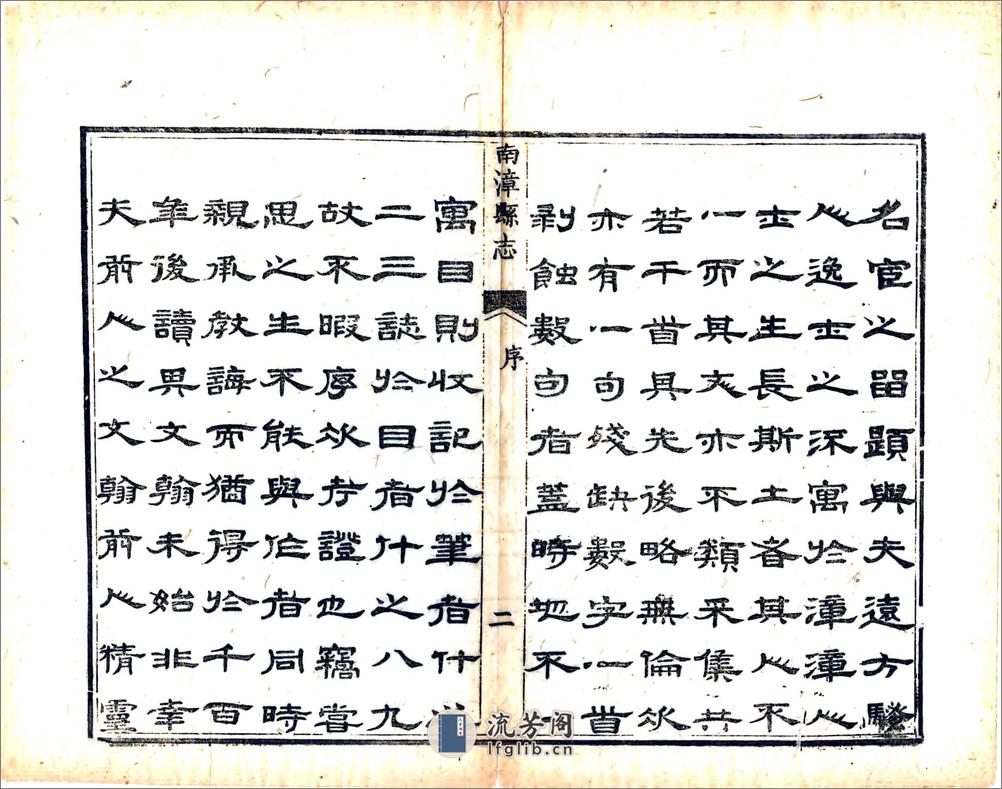 名宦之留題與夫遠方騷
人逸士之流寓於漳漳人
士之生長斯土者其人不
一而其文亦不類采集共
若干首其先後略無倫次
亦有一句殘缺數字一首
剥蝕數句者蓋時地不
南漳縣志
序
二
寓目則收記於筆者什之
二三誌於目者什之八九
故不暇序次考證也竊嘗
思之生不能與作者同時
親承教誨而猶得於千百
年後讀其文翰未始非幸
夫前人之文翰前人精靈
流芳阁
lfglib.cn